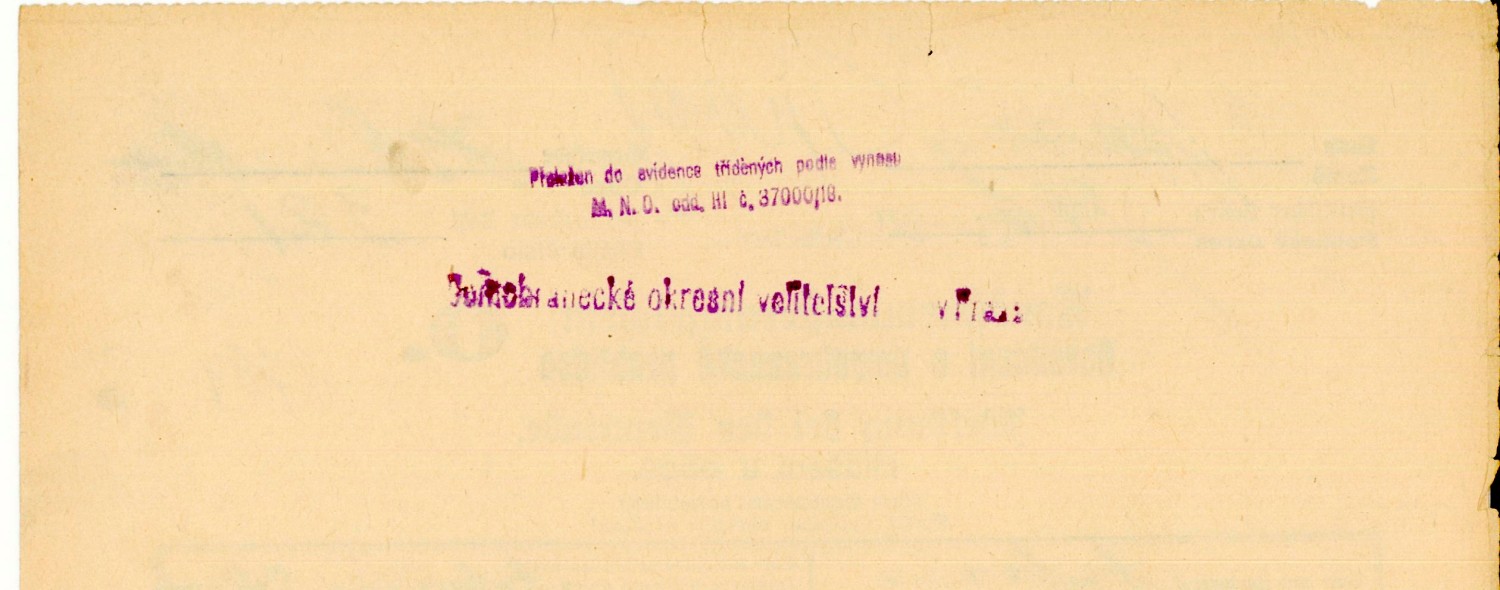 Přeložen do evidence tříděných podle vynosu
M. N. O. odd. III č. 37000/18.
Domobranecké okresní velitelství v Praze